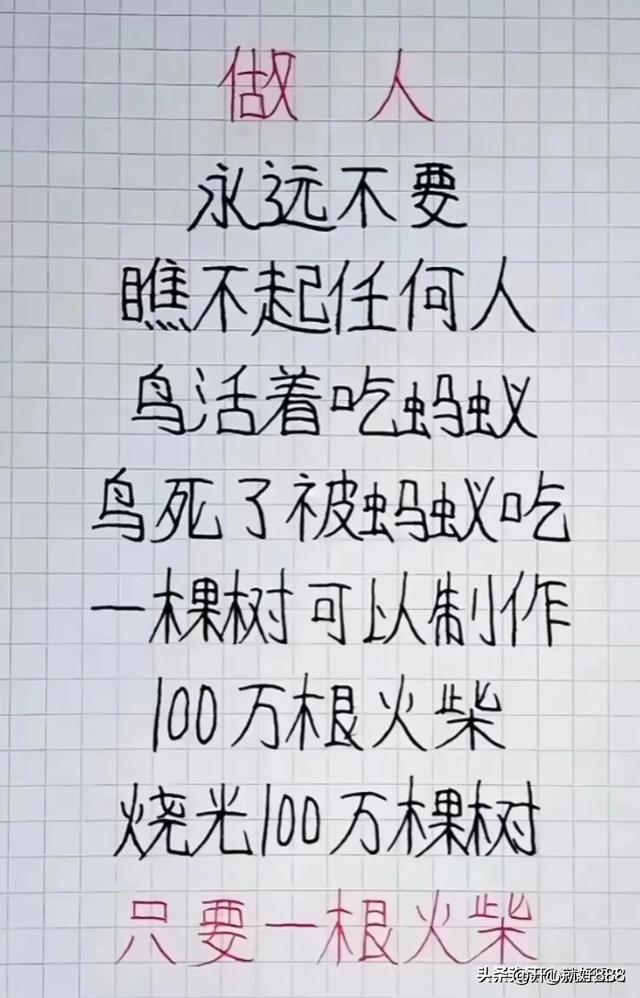 做人
永远不要
瞧不起任何人
鸟活着吃蚂蚁
鸟死了被蚂蚁吃
一棵树可以制作
100万根火柴
烧光100万棵树
只要一根火柴
头条@开心就好888